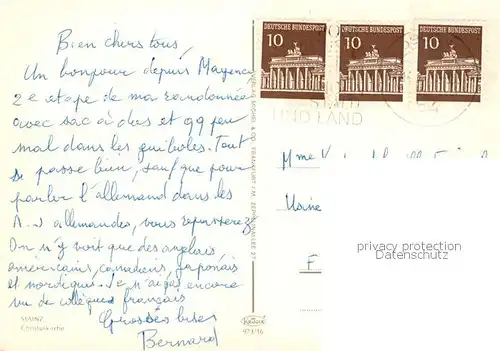 Bien chers tous,
Un bonjour depuis Mayence
2e etape de ma randonnée
avec sac à dos et qq peu
mal dans les guiboles. Tout
se passe bien, sauf que pour
parler l'allemand dans les
A.J allemandes, vous repasserez
On n'y voit que des anglais
américains, canadiens, japonais
et nordiques. Je n'ai pas encore
vu de collègues français
Grosses bises
Bernard
MAINZ
Christuskirche
DEUTSCHE BUNDESPOST
10
DEUTSCHE BUNDESPOST
10
DEUTSCHE BUNDESPOST
10
UND LAND
Mme
Usine
F
privacy protection
Datenschutz